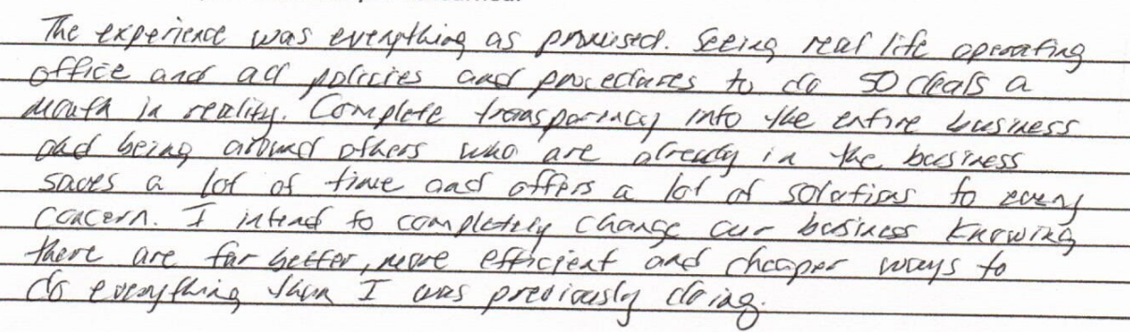 The experience was everything as promised. Seeing real life operating
office and all policies and procedures to do 50 deals a
month in reality. Complete transparency into the entire business
and being around others who are already in the business
saves a lot of time and offers a lot of solutions to every
concern. I intend to completely change our business knowing
there are far better, more efficient and cheaper ways to
do everything than I was previously doing.